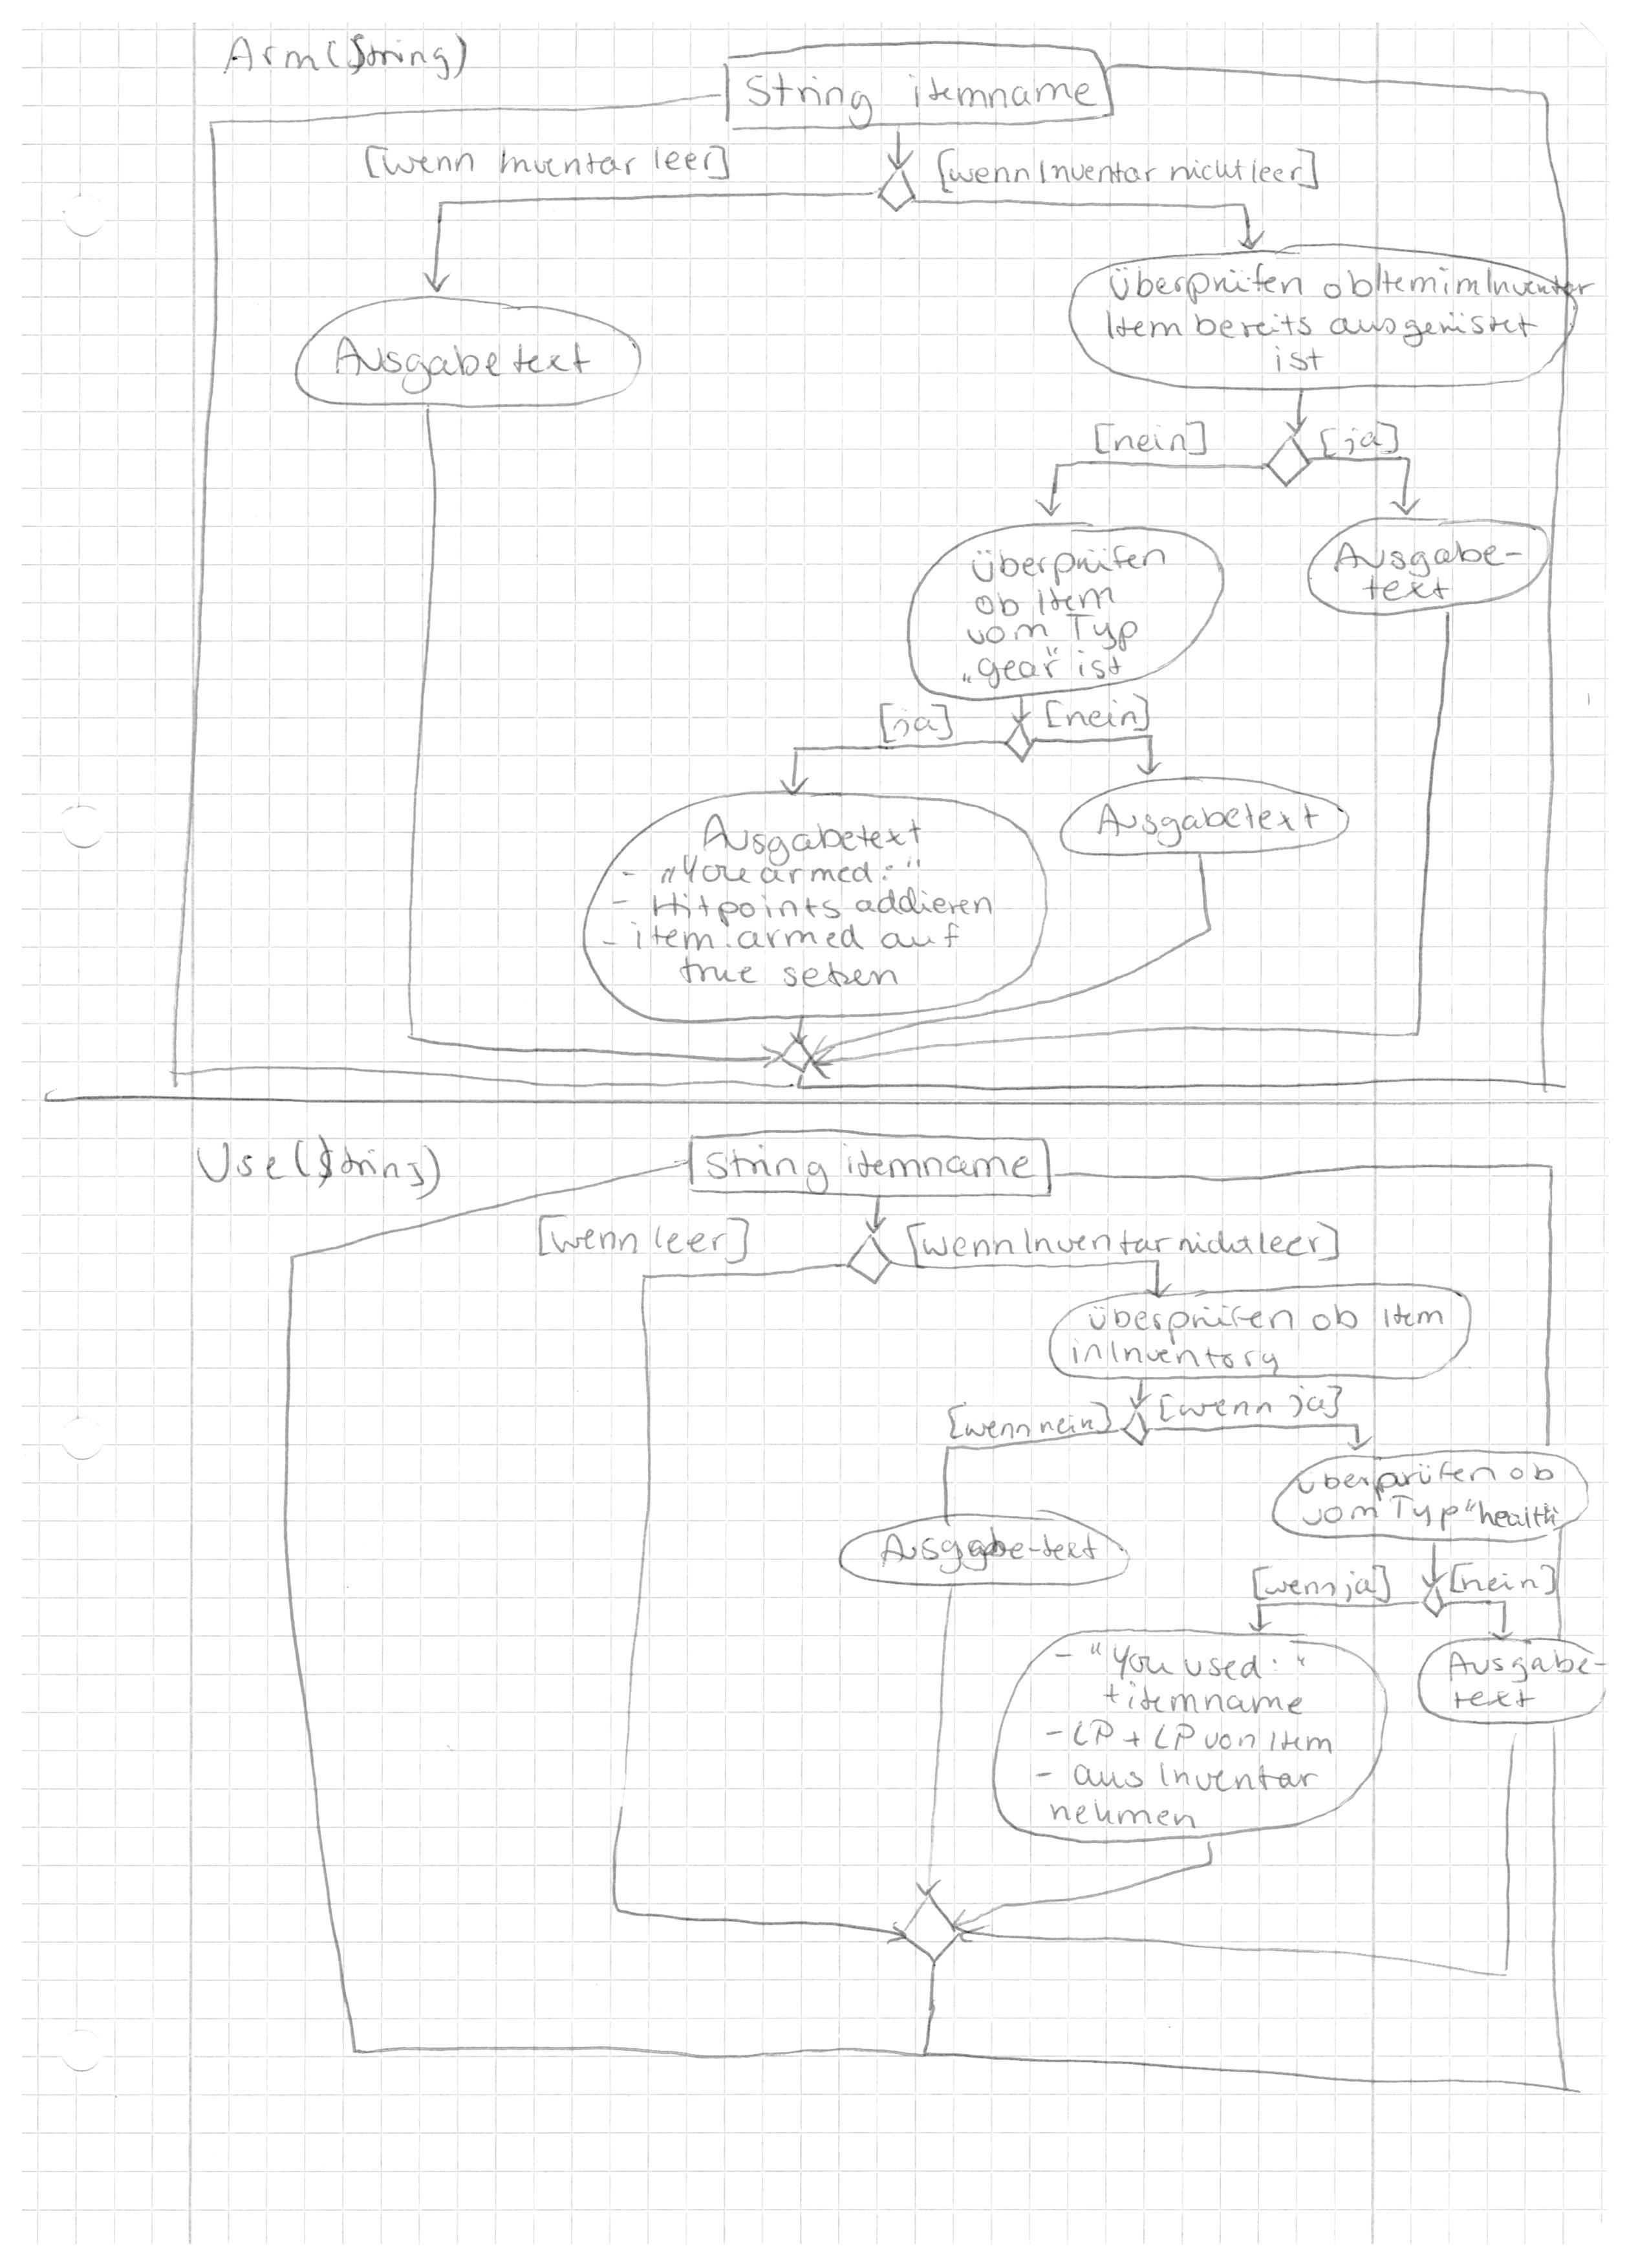 Arm(String)
String itemname
[wenn Inventar leer]
[wenn Inventar nicht leer]
Ausgabetext
überprüfen ob Item im Inventar
Item bereits ausgerüstet
ist
[nein]
[ja]
überprüfen
ob Item
vom Typ
„gear" ist
Ausgabe-
text
[ja]
[nein]
Ausgabetext
- „You armed:"
- Hitpoints addieren
- item.armed auf
true setzen
Ausgabetext
Use(String)
String itemname
[wenn leer]
[wenn Inventar nicht leer]
überprüfen ob Item
in Inventory
[wenn nein]
[wenn ja]
Ausgabe-text
überprüfen ob
vom Typ "health"
[wenn ja]
[nein]
- "You used:"
+ itemname
- LP + LP von Item
- aus Inventar
nehmen
Ausgabe-
text